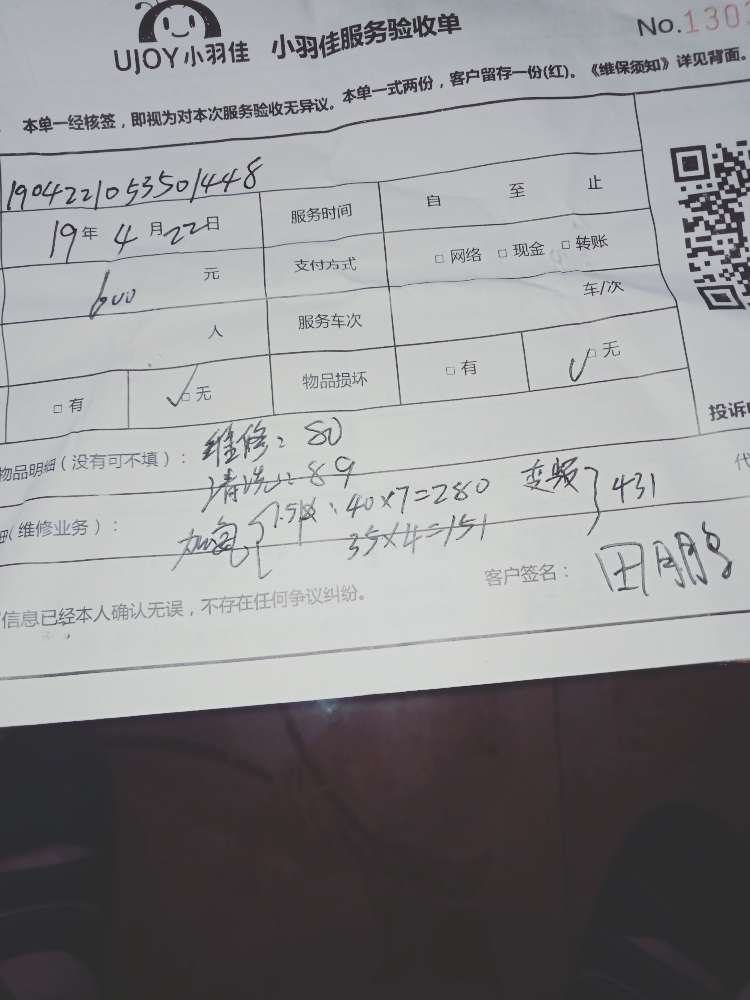 UJOY小羽佳 小羽佳服务验收单 No.130
本单一经核签，即视为对本次服务验收无异议。本单一式两份，客户留存一份(红)。《维保须知》详见背面。
1904221053501448
19年4月22日 服务时间 自 至 止
600元 支付方式 □网络 □现金 □转账
人 服务车次 车/次
□有 ✓□无 物品损坏 □有 ✓□无
投诉
物品明细(没有可不填)： 维修：80
清洗：89
代
细(维修业务)： 加氟 1.5P：40×7=280 变频 431
35×4=151
客户签名： 田鹏
信息已经本人确认无误，不存在任何争议纠纷。